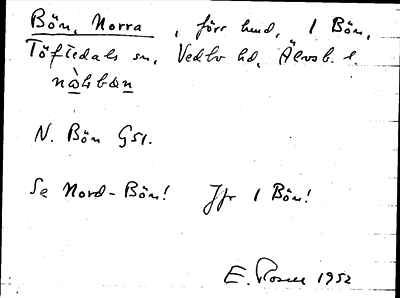 Bön, Norra, förr hmd, 1 Bön,
Töftedals sn, Vedbo hd, Älvsb. l.
N. Bön GSt.
Se Nord-Bön! Jfr 1 Bön!
E. Rosell 1952